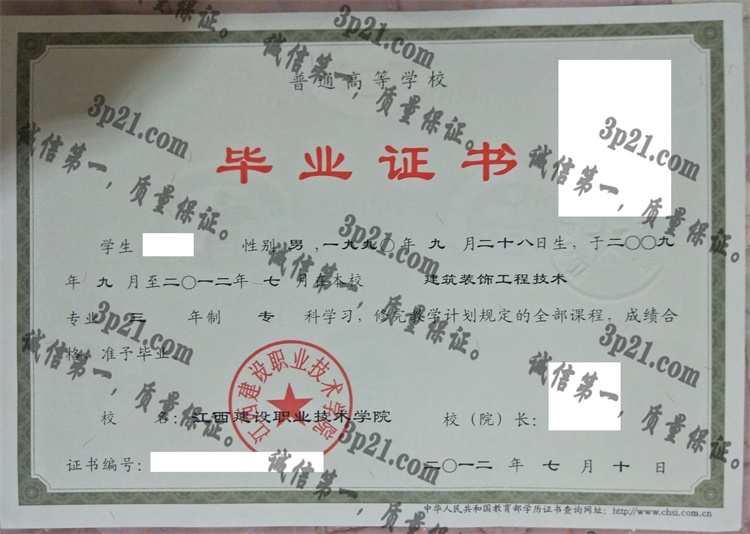 普通高等学校
毕业证书
学生 性别 男 ,一九九〇年 九 月二十八日生, 于二〇〇九
年 九 月至二〇一二年 七 月在本校 建筑装饰工程技术
专业 三 年制 专 科学习, 修完教学计划规定的全部课程, 成绩合
格, 准予毕业
校 名: 江西建设职业技术学院 校（院）长:
江西建设职业技术学院
证书编号: 二〇一二 年 七 月 十 日
中华人民共和国教育部学历证书查询网址: http://www.chsi.com.cn
3p21.com
诚信第一，质量保证。
3p21.com
诚信第一，质量保证。
3p21.com
诚信第一，质量保证。
3p21.com
诚信第一，质量保证。
3p21.com
诚信第一，质量保证。
3p21.com
诚信第一，质量保证。
3p21.com
诚信第一，质量保证。